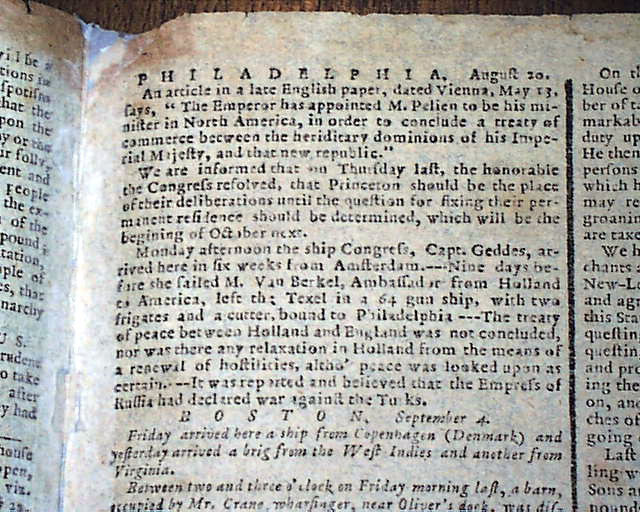 PHILADELPHIA, August 20.
An article in a late English paper, dated Vienna, May 13,
says, "The Emperor has appointed M. Pelien to be his mi-
nister in North America, in order to conclude a treaty of
commerce between the heriditary dominions of his Impe-
rial Majesty, and that new republic."
We are informed that on Thursday last, the honorable
the Congress resolved, that Princeton should be the place
of their deliberations until the question for fixing their per-
manent residence should be determined, which will be the
begining of October next.
Monday afternoon the ship Congress, Capt. Geddes, ar-
rived here in six weeks from Amsterdam.---Nine days be-
fore she sailed M. Van Berkel, Ambassador from Holland
to America, left the Texel in a 64 gun ship, with two
frigates and a cutter, bound to Philadelphia ---The treaty
of peace between Holland and England was not concluded,
nor was there any relaxation in Holland from the means of
a renewal of hostilities, altho' peace was looked upon as
certain.---It was reported and believed that the Empress of
Russia had declared war against the Turks.
BOSTON, September 4.
Friday arrived here a ship from Copenhagen (Denmark) and
yesterday arrived a brig from the West Indies and another from
Virginia.
Between two and three o'clock on Friday morning last, a barn,
occupied by Mr. Crane, wharfinger, near Oliver's dock, was dis-
On th
House o
ber of t
markab
duty up
He then
persons
which h
may re
groanin
are taxe
We h
chants
New-Lo
and ag
this Stat
questin
questin
and pro
ing the
on, and
ches of
going
Last
ling w
Sons a
pound
will be a
tions in
that the
upon the
ur folly,
ent and
People
the ex-
of the
tation,
ple of
es, that
narchy
U S.
to take
after
ey had
house
open,
viz.